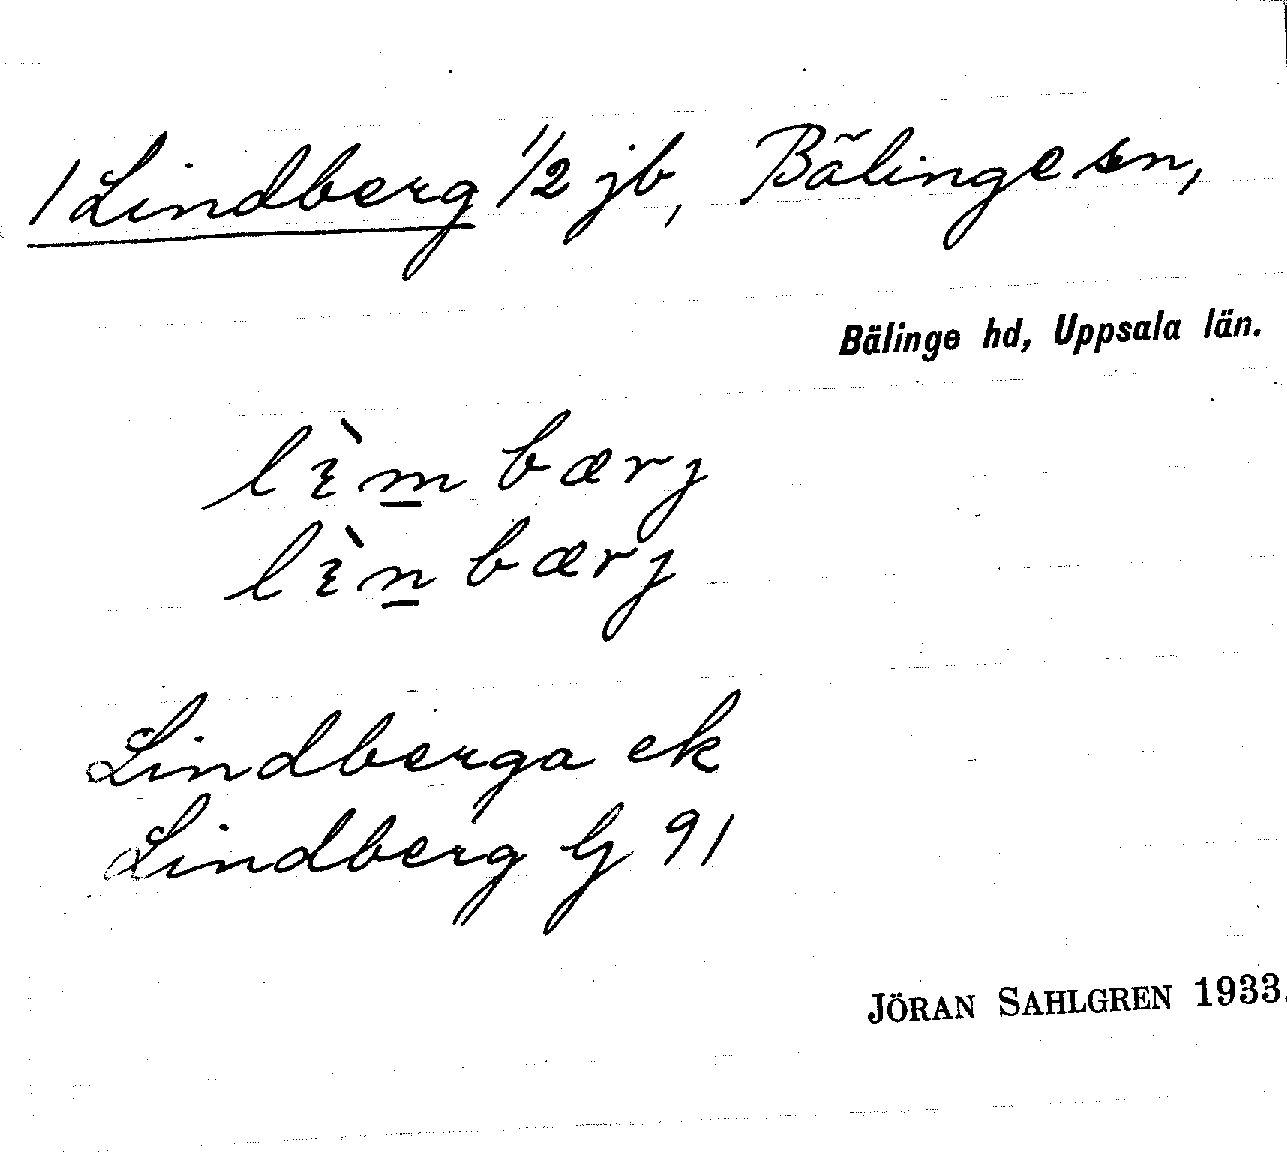 1 Lindberg 1/2 jb, Bälinge sn,
Bälinge hd, Uppsala län.
lɩ̀m̲bærj
lɩ̀n̲bærj
Lindberga ek
Lindberg Gj 91
JÖRAN SAHLGREN 1933.